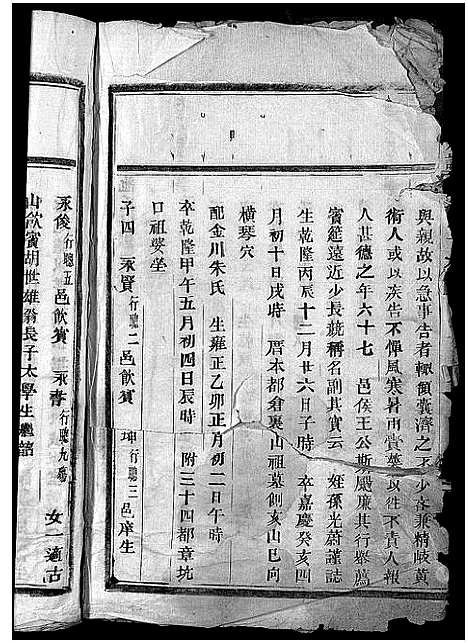 與親故以急事告者輙傾囊濟之不少吝兼精岐黄
術人或以疾告不憚風寒暑雨賞藥以徃不責人報
人甚德之年六十七　邑侯王公斯颺廉其行舉爲
賓筵遠近少長競稱名副其實云　姪孫光蔚謹誌
生乾隆丙辰十二月廿六日子時　卒嘉慶癸亥四
月初十日戌時　厝本都倉裏山祖墓側亥山巳向
橫琴穴
配金川朱氏　生雍正乙卯正月初二日午時
卒乾隆甲午五月初四日辰時　附三十四都章坑
口祖塋坐
子四　永賢行聰二邑飲賓　坤行聰三邑庠生
永俊行聰五邑飲賓　永青行聰九殤
女一適古
山飲賓胡世雄翁長子太學生